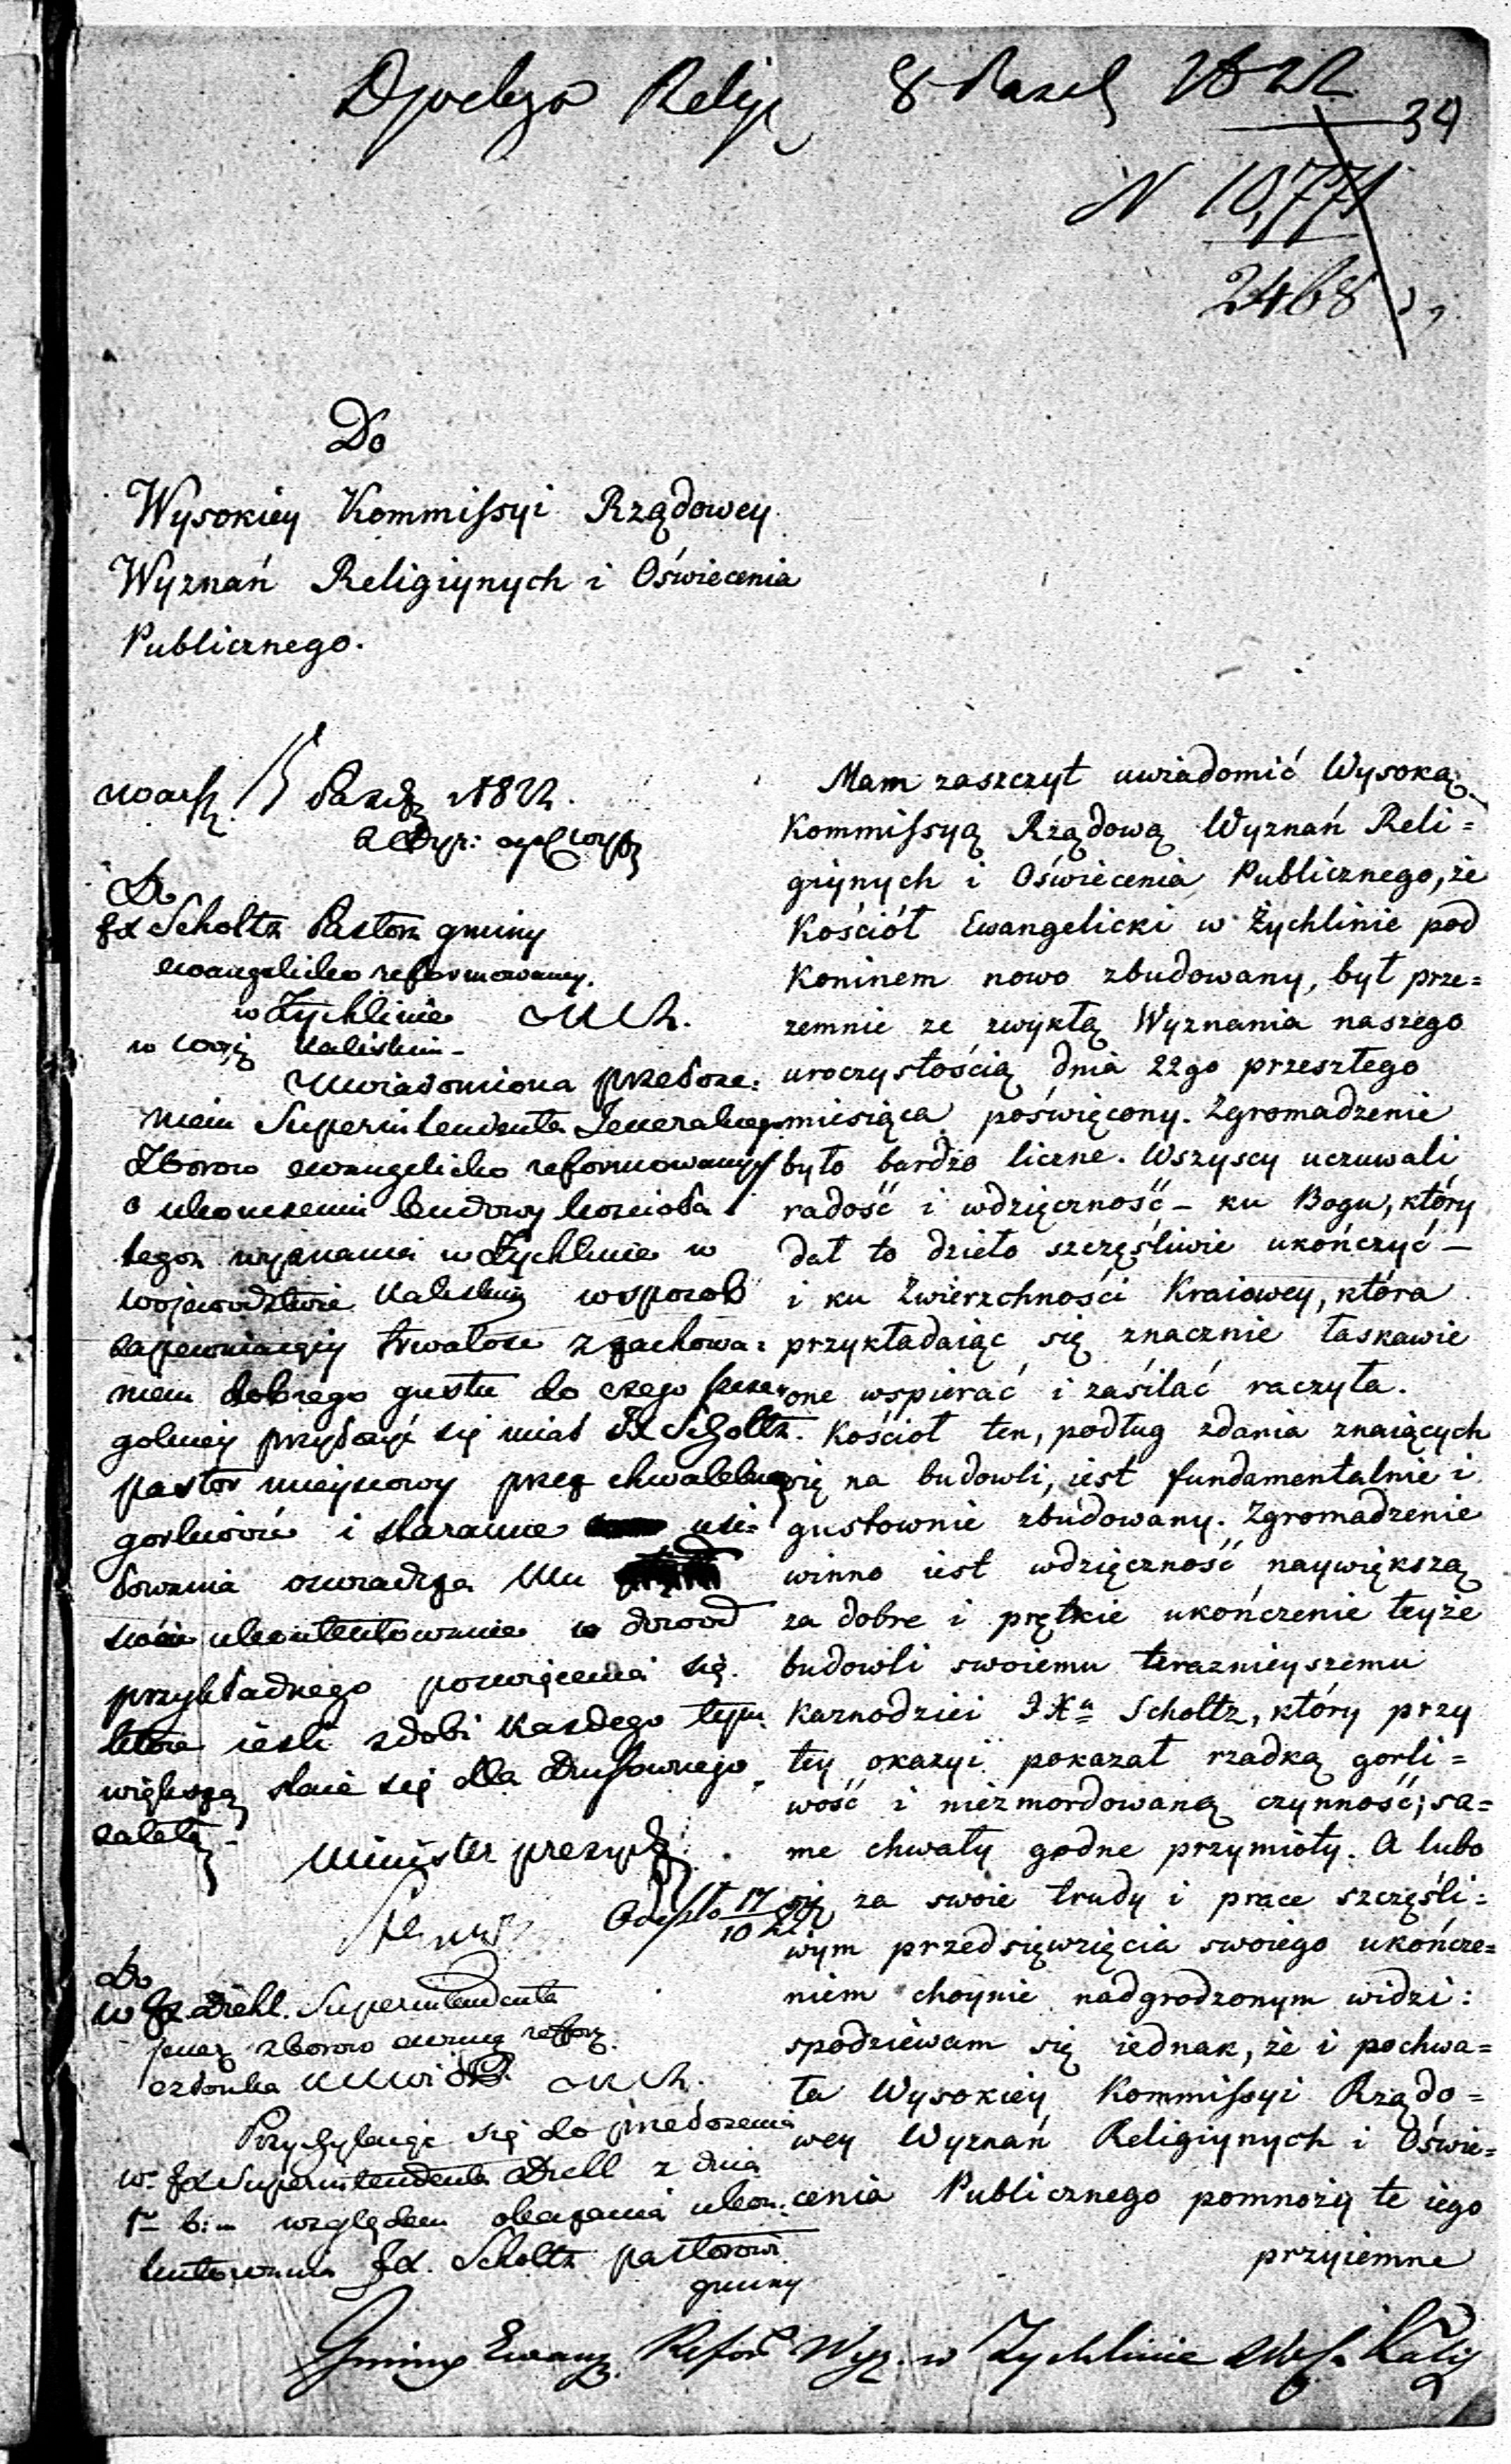 8 1822
34
N 10,771
2468
Do
Wysokiey Kommissyi Rządowey
Wyznań Religiynych i Oświecenia
Publicznego.
Mam zaszczyt uwiadomić Wysoką
Kommissyą Rządową Wyznań Reli=
giynych i Oświecenia Publicznego, że
Kościół Ewangelicki w Żychlinie pod
Koninem nowo zbudowany, był prze=
zemnie ze zwykłą Wyznania naszego
uroczystością dnia 22go przeszłego
miesiąca poświęcony. Zgromadzenie
było bardzo liczne. Wszyscy uczuwali
radość i wdzięczność – ku Bogu, który
dał to dzieło szczęśliwie ukończyć –
i ku Zwierzchności Kraiowey, która
przykładaiąc się znacznie łaskawie
one wspierać i zasilać raczyła.
Kościoł ten, podług zdania znaiących
się na budowli, iest fundamentalnie i
gustownie zbudowany. Zgromadzenie
winno iest wdzięczność naywiększą
za dobre i prętkie ukończenie teyże
budowli swoiemu teraznieyszemu
Kaznodziei Scholtz, który przy
tey okazyi pokazał rzadką gorli=
wość i niezmordowaną czynność; sa=
me chwały godne przymioty. A lubo
się za swoie trudy i prace szczęśli=
wym przedsięwzięcia swoiego ukończe=
niem choynie nadgrodzonym widzi:
spodziewam się iednak, że i pochwa=
ła Wysokiey Kommissyi Rządo=
wey Wyznań Religiynych i Oświe=
cenia Publicznego pomnoży te iego
przyiemne
1822.
Do
Scholtz Pastora gminy
ewangelicko reformowaney
w Żychlinie
w Kaliskim –
Uwiadomiona przełoże=
niem Superintendenta Jeneralnego
Zborow ewangelicko reformowanych
o ukonczeniu budowy kościoła
tegoz wyznania w Żychlinie w
Wojewodztwie Kaliskim w sposob
zapewniaiący trwałosc z zachowa=
niem dobrego gustu do czego szcze=
golniey przyłożyć się miał Scholtz
pastor mieyscowy przez chwalebną
gorliwość i staranne usi=
łowania oswiadcza Mu
swoie ukontentowanie w dowod
przykładnego poswięcenia się
które iesli zdobi każdego tym
większą staie się dla Duchownego
zaletą –
Minister
17
10
Do
Diehl Superintendenta
zborow
członka
Przychylaiąc się do przełożenia
Superintendenta Diehl z dnia
względem okazania ukon=
tentowania Scholtz pastorowi
gminy
Gminy Ewang. Refor. Wyz. w Żychlinie